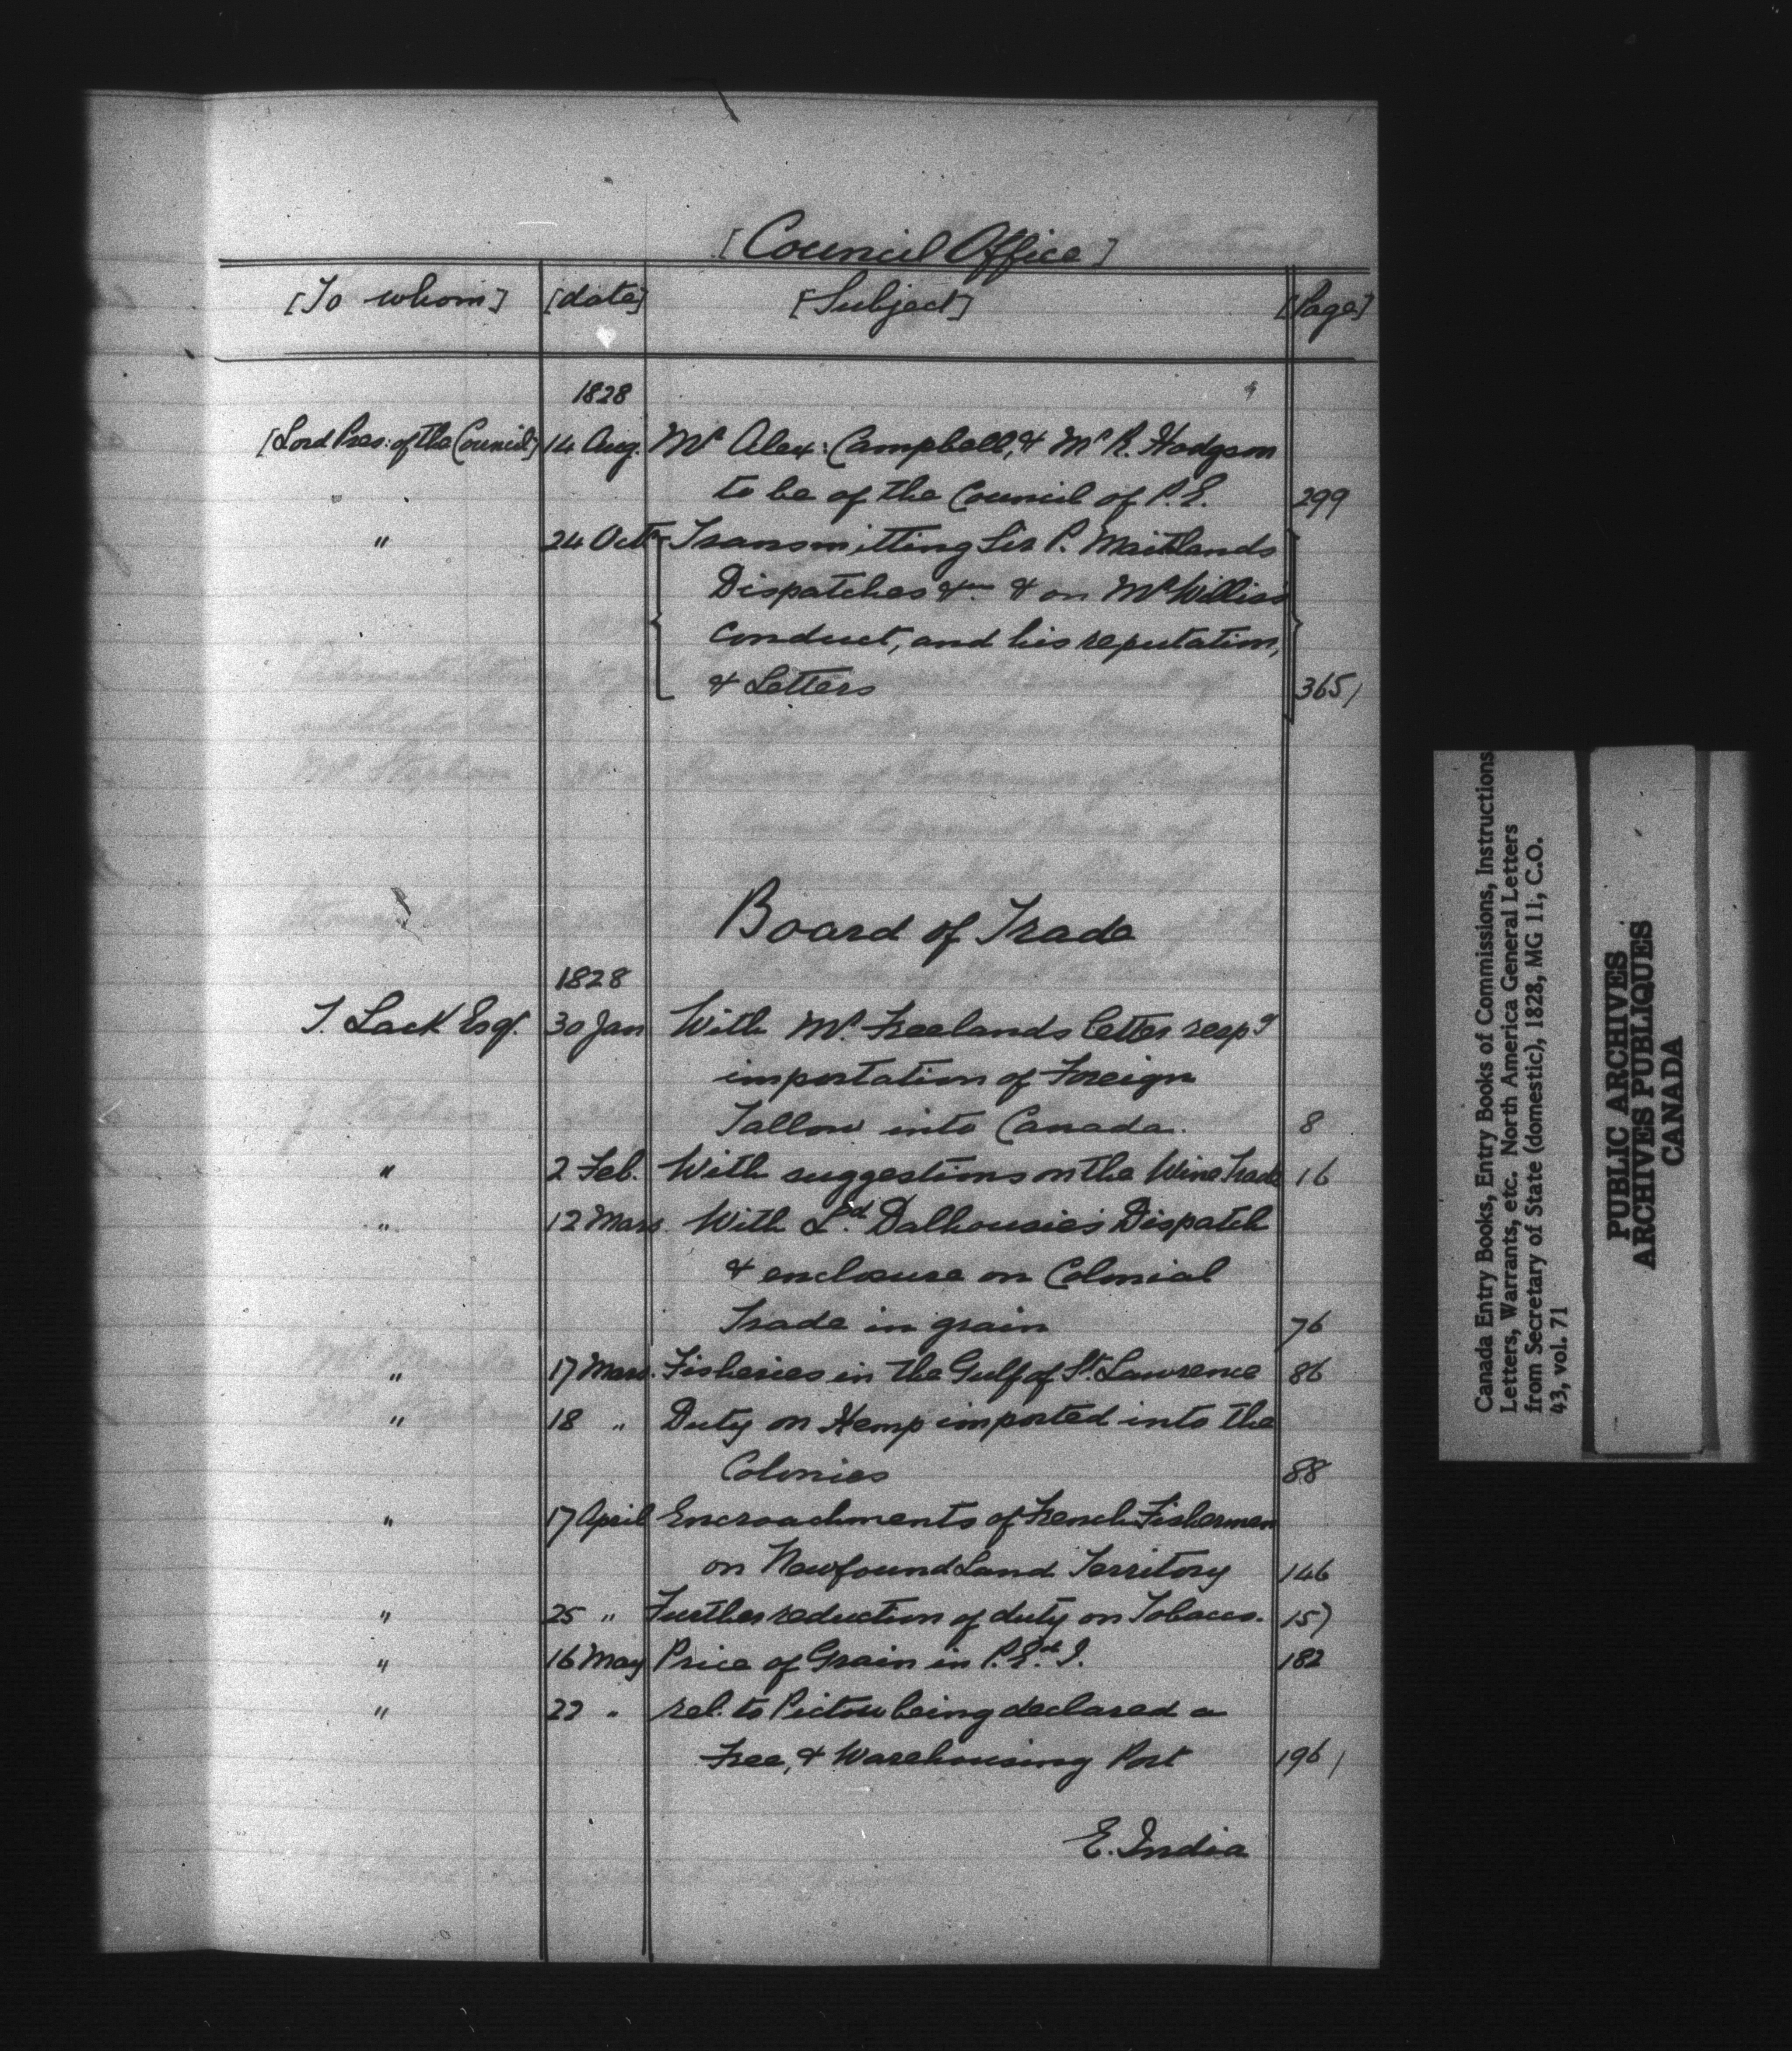 [Council Office]
[To whom] [date] [Subject] [Page]
1828
[Lord Pres: of the Council] 14 Aug. Mr Alex: Campbell, & Mr R. Hodgson
" " to be of the Council of P.E. 299
" 24 Oct Transmitting Sir P. Maitlands
Dispatches &c & on Mr Willis's
Conduct, and his reputation,
& Letters 365/
Board of Trade
1828
T. Lack Esqr. 30 Jan With Mr. Freelands letter respg
importation of Foreign
Tallow into Canada. 8
" 2 Feb. With suggestions on the Wine Trade 16
" 12 Mars. With Ld. Dalhousie's Dispatch
& enclosure on Colonial
Trade in grain 76
" 17 Mars. Fisheries in the Gulf of St. Lawrence 86
" 18 " Duty on Hemp imported into the
Colonies 88
" 17 April Encroachments of French Fishermen
on NewfoundLand Territory 146
" 25 " Further reduction of duty on Tobacco. 157
" 16 May Price of Grain in P.Ed.I. 182
" 22 " rel. to Pictou being declared a
Free, & Warehousing Port 196/
E. India
Canada Entry Books, Entry Books of Commissions, Instructions
Letters, Warrants, etc. North America General Letters
from Secretary of State (domestic), 1828, MG 11, C.O.
43, vol. 71
PUBLIC ARCHIVES
ARCHIVES PUBLIQUES
CANADA